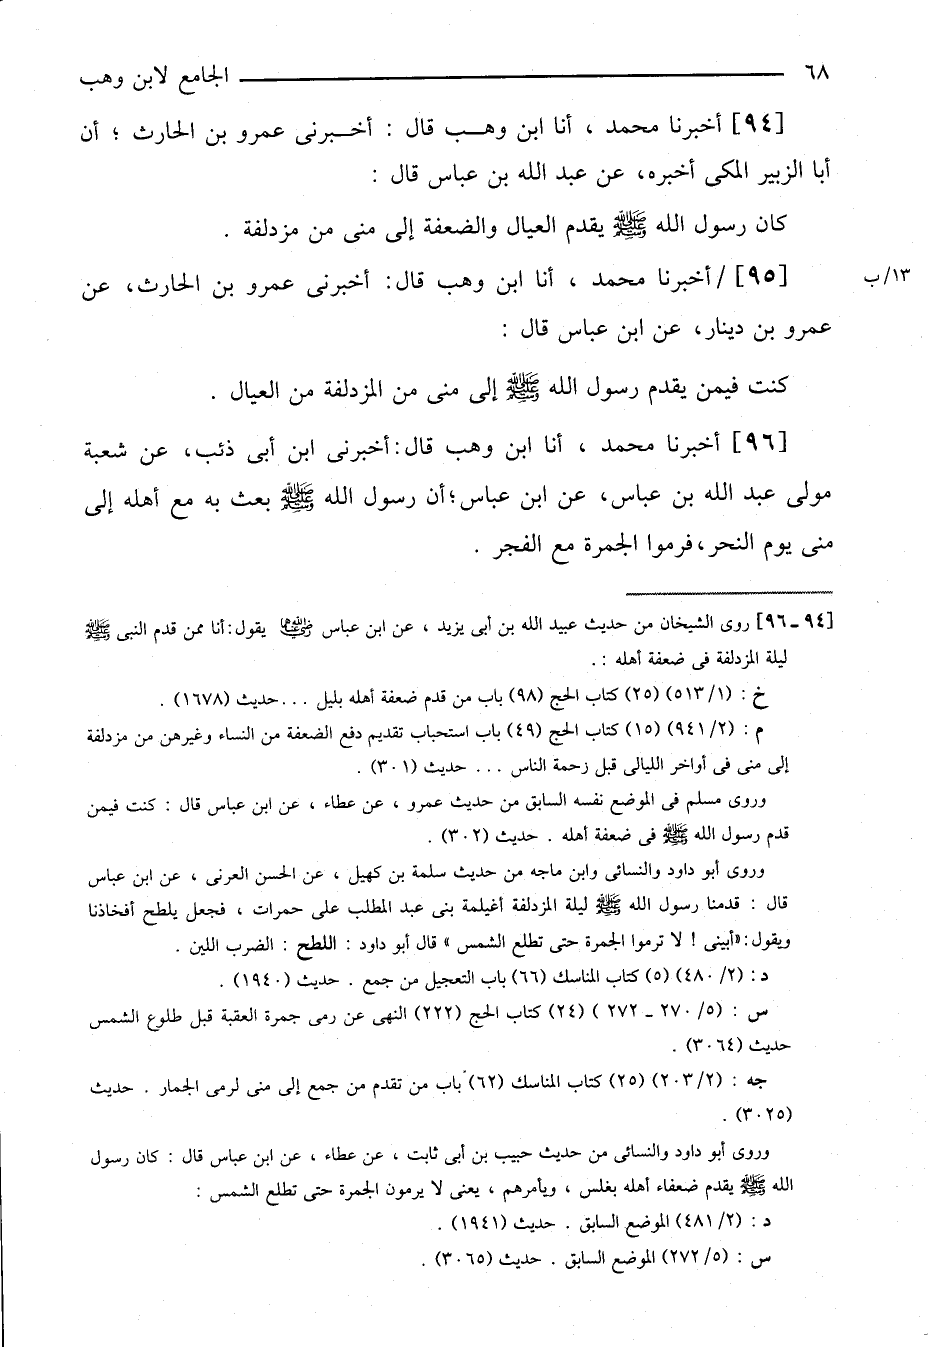 ٦٨ الجامع لابن وهب
[٩٤] أخبرنا محمد ، أنا ابن وهب قال : أخبرنى عمرو بن الحارث ؛ أن
أبا الزبير المكى أخبره، عن عبد الله بن عباس قال :
كان رسول الله ﷺ يقدم العيال والضعفة إلى منى من مزدلفة .
[٩٥] / أخبرنا محمد ، أنا ابن وهب قال: أخبرنى عمرو بن الحارث، عن
١٣/ب
عمرو بن دينار، عن ابن عباس قال :
كنت فيمن يقدم رسول الله ﷺ إلى منى من المزدلفة من العيال .
[٩٦] أخبرنا محمد ، أنا ابن وهب قال:أخبرنى ابن أبى ذئب، عن شعبة
مولى عبد الله بن عباس، عن ابن عباس؛أن رسول الله ﷺ بعث به مع أهله إلى
منى يوم النحر،فرموا الجمرة مع الفجر .
[٩٤ ـ ٩٦] روى الشيخان من حديث عبيد الله بن أبى يزيد ، عن ابن عباس رضي الله عنهما يقول:أنا ممن قدم النبى ﷺ
ليلة المزدلفة فى ضعفة أهله :.
خ : (٥١٣/١) (٢٥) كتاب الحج (٩٨) باب من قدم ضعفة أهله بليل ... حديث (١٦٧٨) .
م : (٩٤١/٢) (١٥) كتاب الحج (٤٩) باب استحباب تقديم دفع الضعفة من النساء وغيرهن من مزدلفة
إلى منى فى أواخر الليالى قبل زحمة الناس ... حديث (٣٠١) .
وروى مسلم فى الموضع نفسه السابق من حديث عمرو ، عن عطاء ، عن ابن عباس قال : كنت فيمن
قدم رسول الله ﷺ فى ضعفة أهله . حديث (٣٠٢) .
وروى أبو داود والنسائى وابن ماجه من حديث سلمة بن كهيل ، عن الحسن العرنى ، عن ابن عباس
قال : قدمنا رسول الله ﷺ ليلة المزدلفة أغيلمة بنى عبد المطلب على حمرات ، فجعل يلطح أفخاذنا
ويقول:«أبينى ! لا ترموا الجمرة حتى تطلع الشمس » قال أبو داود : اللطح : الضرب اللين .
د : (٤٨٠/٢) (٥) كتاب المناسك (٦٦) باب التعجيل من جمع . حديث (١٩٤٠) .
س : (٥/ ٢٧٠ ـ ٢٧٢ ) (٢٤) كتاب الحج (٢٢٢) النهى عن رمى جمرة العقبة قبل طلوع الشمس
حديث (٣٠٦٤) .
جه : (٢٠٣/٢) (٢٥) كتاب المناسك (٦٢) باب من تقدم من جمع إلى منى لرمى الجمار . حديث
(٣٠٢٥) .
وروى أبو داود والنسائى من حديث حبيب بن أبى ثابت ، عن عطاء ، عن ابن عباس قال : كان رسول
الله ﷺ يقدم ضعفاء أهله بغلس ، ويأمرهم ، يعنى لا يرمون الجمرة حتى تطلع الشمس :
د : (٤٨١/٢) الموضع السابق . حديث (١٩٤١) .
س : (٢٧٢/٥) الموضع السابق . حديث (٣٠٦٥) .